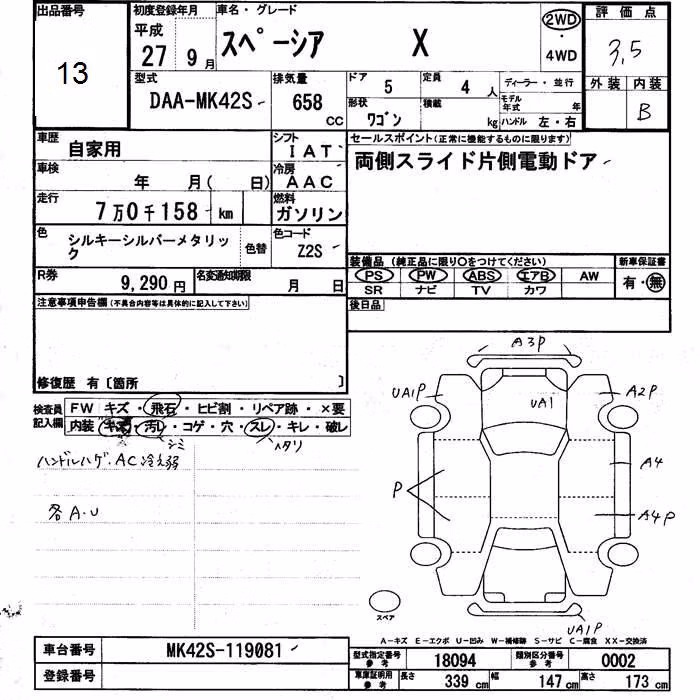 出品番号
13
初度登録年月
平成
27年9月
車名・グレード
スペーシア X
2WD
・
4WD
評価点
3,5
外装 内装
B
型式
DAA-MK42S
排気量
658
CC
ドア
5
定員
4人
ディーラー・並行
形状
ワゴン
積載
kg
モデル年式
年
ハンドル 左・右
車歴
自家用
シフト
IAT
セールスポイント(正常に機能するものに限ります)
両側スライド片側電動ドア
車検
年 月( 日)
冷房
AAC
走行
7万0千158 km
燃料
ガソリン
色
シルキーシルバーメタリック
色替
色コード
Z2S
装備品(純正品に限り○をつけてください)
新車保証書
PS PW ABS エアB AW
SR ナビ TV カワ
有・無
R券
9,290円
名変通知期限
月 日
後日品
注意事項申告欄(不具合内容等は具体的に記入して下さい)
修復歴 有〔箇所 〕
検査員
記入欄
FW キズ・飛石・ヒビ割・リペア跡・×要
内装 キズ・汚レ・コゲ・穴・スレ・キレ・破レ
シミ
ヘタリ
ハンドルハゲ、AC冷え弱
各A・U
A3P
UA1P
UA1
A2P
P
A4
A4P
UA1P
スペア
A−キズ E−エクボ U−凹み W−補修跡 S−サビ C−腐食 XX−交換済
車台番号
MK42S-119081
登録番号
型式指定番号
参考
18094
類別区分番号
参考
0002
車庫証明用
参考
長さ
339cm
幅
147cm
高さ
173cm